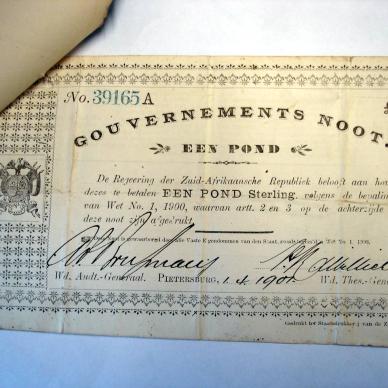 No. 39165 A
GOUVERNEMENTS NOOT.
EEN POND
De Regeering der Zuid-Afrikaansche Republiek belooft aan hou
dezes te betalen EEN POND Sterling, volgens de bepalin
van Wet No. 1, 1900, waarvan artt. 2 en 3 op de achterzijde
deze noot zijn afgedrukt.
gewaarborgd door alle Vaste Eigendommen van den Staat, No. 1, 1900.
Wd. Audt.-Generaal. PIETERSBURG, 1.4.190 Wd. Thes.-Gene
Gedrukt ter Staatsdrukkerij van de Z